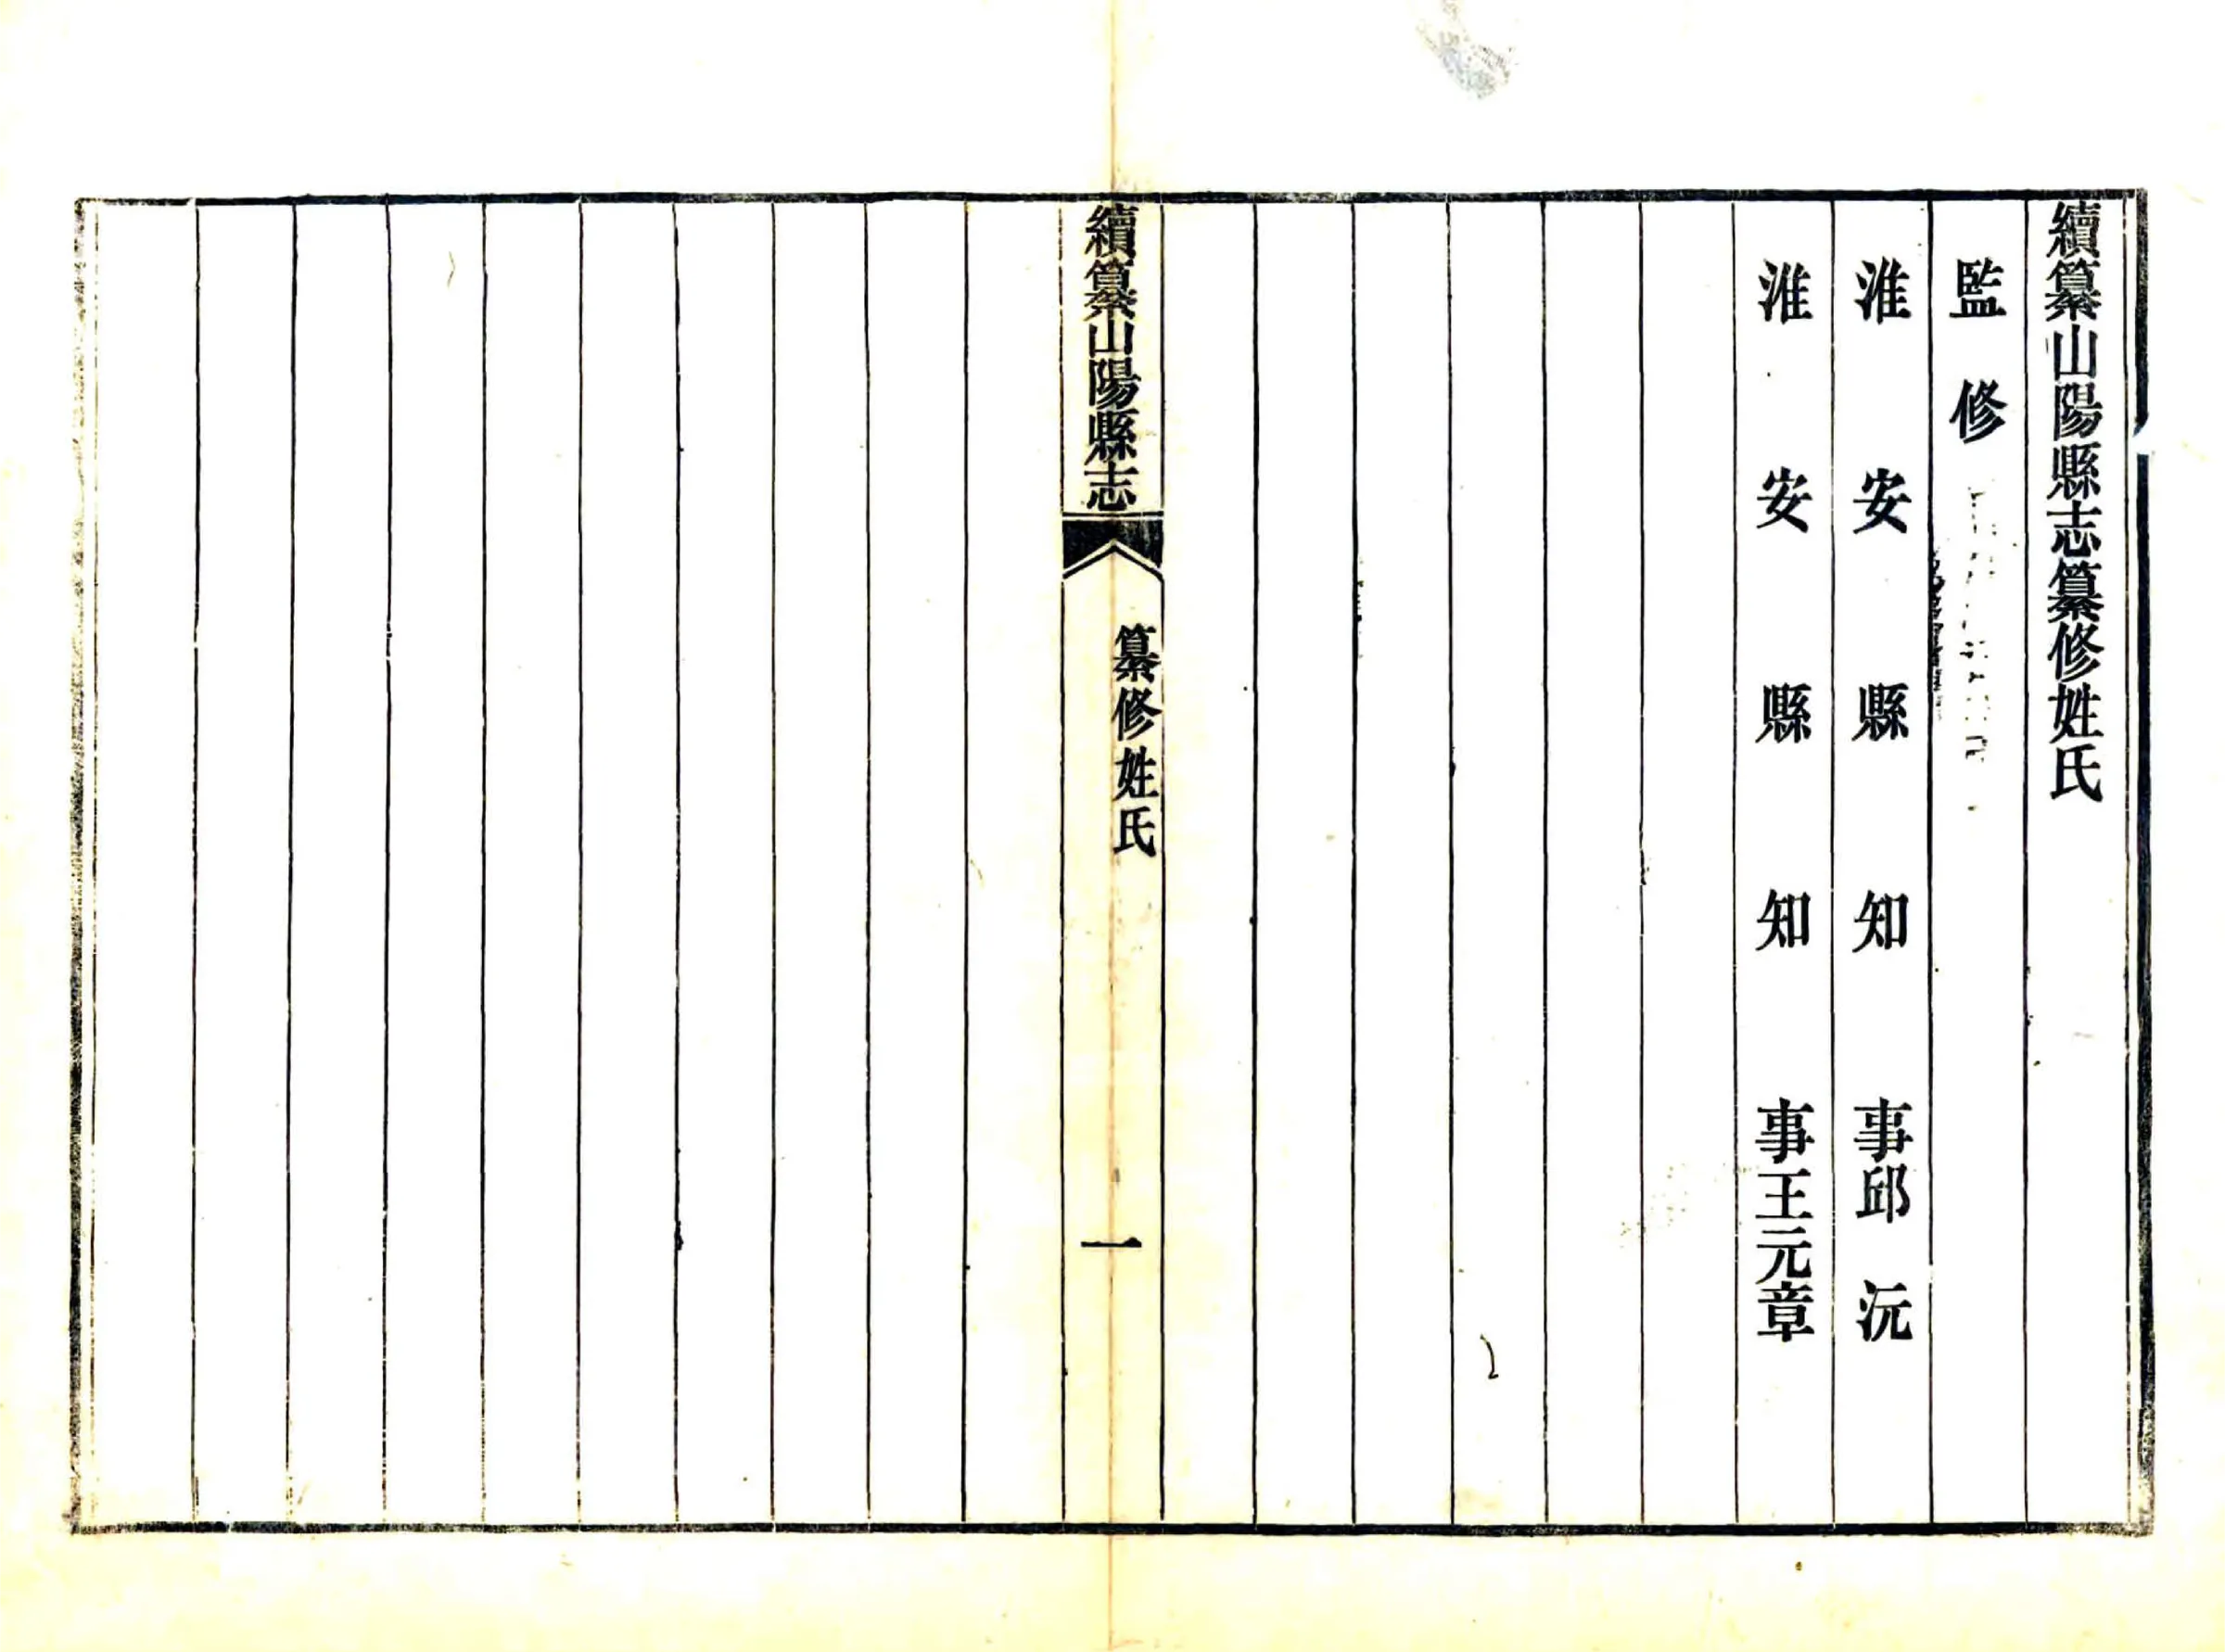 續纂山陽縣志纂修姓氏
監修
淮安縣知事邱沅
淮安縣知事王元章
續纂山陽縣志
纂修姓氏
一